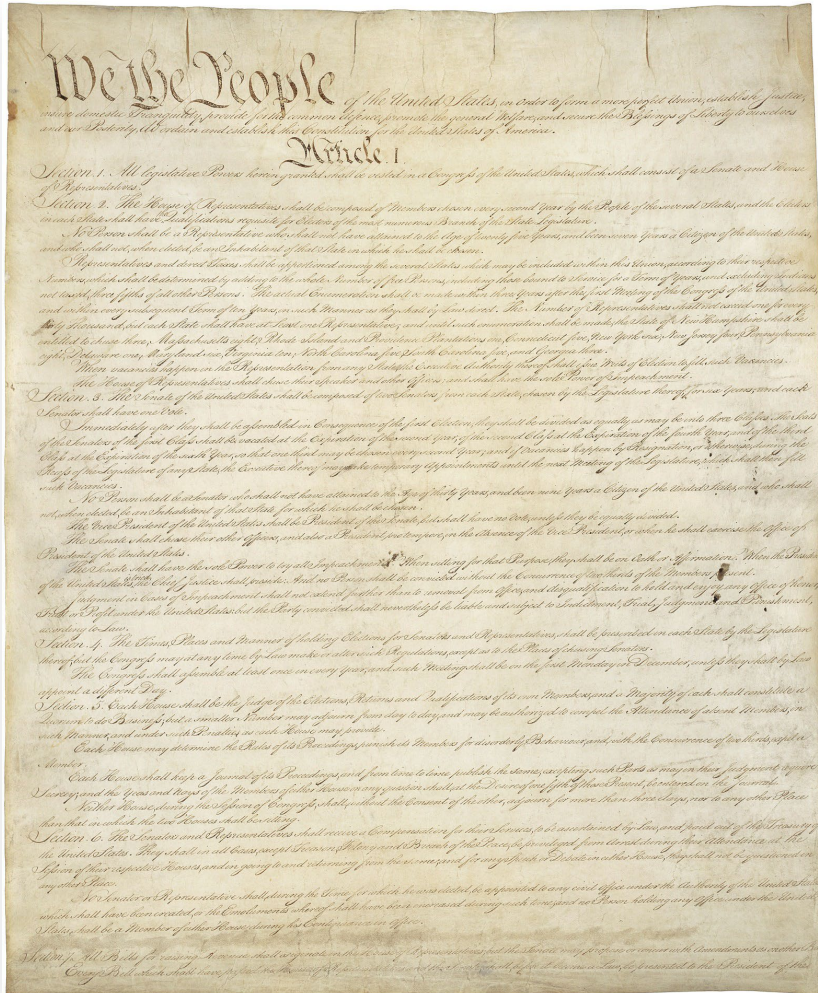 We the People of the United States, in Order to form a more perfect Union, establish Justice,
insure domestic Tranquility, provide for the common defence, promote the general Welfare, and secure the Blessings of Liberty to ourselves
and our Posterity, do ordain and establish this Constitution for the United States of America.
Article. I.
Section. 1. All legislative Powers herein granted shall be vested in a Congress of the United States, which shall consist of a Senate and House
of Representatives.
Section. 2. The House of Representatives shall be composed of Members chosen every second Year by the People of the several States, and the Electors
in each State shall have Qualifications requisite for Electors of the most numerous Branch of the State Legislature.
No Person shall be a Representative who shall not have attained to the Age of twenty five Years, and been seven Years a Citizen of the United States,
and who shall not, when elected, be an Inhabitant of that State in which he shall be chosen.
Representatives and direct Taxes shall be apportioned among the several States which may be included within this Union, according to their respective
Numbers, which shall be determined by adding to the whole Number of free Persons, including those bound to Service for a Term of Years, and excluding Indians
not taxed, three fifths of all other Persons. The actual Enumeration shall be made within three Years after the first Meeting of the Congress of the United States,
and within every subsequent Term of ten Years, in such Manner as they shall by Law direct. The Number of Representatives shall not exceed one for every
thirty Thousand, but each State shall have at Least one Representative; and until such enumeration shall be made, the State of New Hampshire shall be
entitled to chuse three, Massachusetts eight, Rhode Island and Providence Plantations one, Connecticut five, New York six, New Jersey four, Pennsylvania
eight, Delaware one, Maryland six, Virginia ten, North Carolina five, South Carolina five, and Georgia three.
When vacancies happen in the Representation from any State, the Executive Authority thereof shall issue Writs of Election to fill such Vacancies.
The House of Representatives shall chuse their Speaker and other Officers; and shall have the sole Power of Impeachment.
Section. 3. The Senate of the United States shall be composed of two Senators from each State, chosen by the Legislature thereof, for six Years; and each
Senator shall have one Vote.
Immediately after they shall be assembled in Consequence of the first Election, they shall be divided as equally as may be into three Classes. The Seats
of the Senators of the first Class shall be vacated at the Expiration of the second Year, of the second Class at the Expiration of the fourth Year, and of the third
Class at the Expiration of the sixth Year, so that one third may be chosen every second Year; and if Vacancies happen by Resignation, or otherwise, during the
Recess of the Legislature of any State, the Executive thereof may make temporary Appointments until the next Meeting of the Legislature, which shall then fill
such Vacancies.
No Person shall be a Senator who shall not have attained to the Age of thirty Years, and been nine Years a Citizen of the United States, and who shall
not, when elected, be an Inhabitant of that State for which he shall be chosen.
The Vice President of the United States shall be President of the Senate, but shall have no Vote, unless they be equally divided.
The Senate shall chuse their other Officers, and also a President pro tempore, in the Absence of the Vice President, or when he shall exercise the Office of
President of the United States.
The Senate shall have the sole Power to try all Impeachments. When sitting for that Purpose, they shall be on Oath or Affirmation. When the President
of the United States is tried, the Chief Justice shall preside: And no Person shall be convicted without the Concurrence of two thirds of the Members present.
Judgment in Cases of Impeachment shall not extend further than to removal from Office, and disqualification to hold and enjoy any Office of honor,
Trust or Profit under the United States: but the Party convicted shall nevertheless be liable and subject to Indictment, Trial, Judgment and Punishment,
according to Law.
Section. 4. The Times, Places and Manner of holding Elections for Senators and Representatives, shall be prescribed in each State by the Legislature
thereof; but the Congress may at any time by Law make or alter such Regulations, except as to the Places of chusing Senators.
The Congress shall assemble at least once in every Year, and such Meeting shall be on the first Monday in December, unless they shall by Law
appoint a different Day.
Section. 5. Each House shall be the Judge of the Elections, Returns and Qualifications of its own Members, and a Majority of each shall constitute a
Quorum to do Business; but a smaller Number may adjourn from day to day, and may be authorized to compel the Attendance of absent Members, in
such Manner, and under such Penalties as each House may provide.
Each House may determine the Rules of its Proceedings, punish its Members for disorderly Behaviour, and, with the Concurrence of two thirds, expel a
Member.
Each House shall keep a Journal of its Proceedings, and from time to time publish the same, excepting such Parts as may in their Judgment require
Secrecy; and the Yeas and Nays of the Members of either House on any question shall, at the Desire of one fifth of those Present, be entered on the Journal.
Neither House, during the Session of Congress, shall, without the Consent of the other, adjourn for more than three days, nor to any other Place
than that in which the two Houses shall be sitting.
Section. 6. The Senators and Representatives shall receive a Compensation for their Services, to be ascertained by Law, and paid out of the Treasury of
the United States. They shall in all Cases, except Treason, Felony and Breach of the Peace, be privileged from Arrest during their Attendance at the
Session of their respective Houses, and in going to and returning from the same; and for any Speech or Debate in either House, they shall not be questioned in
any other Place.
No Senator or Representative shall, during the Time for which he was elected, be appointed to any civil Office under the Authority of the United States,
which shall have been created, or the Emoluments whereof shall have been encreased during such time; and no Person holding any Office under the United
States, shall be a Member of either House during his Continuance in Office.
Section. 7. All Bills for raising Revenue shall originate in the House of Representatives; but the Senate may propose or concur with Amendments as on other
Every Bill which shall have passed the House of Representatives and the Senate, shall, before it become a Law, be presented to the President of the